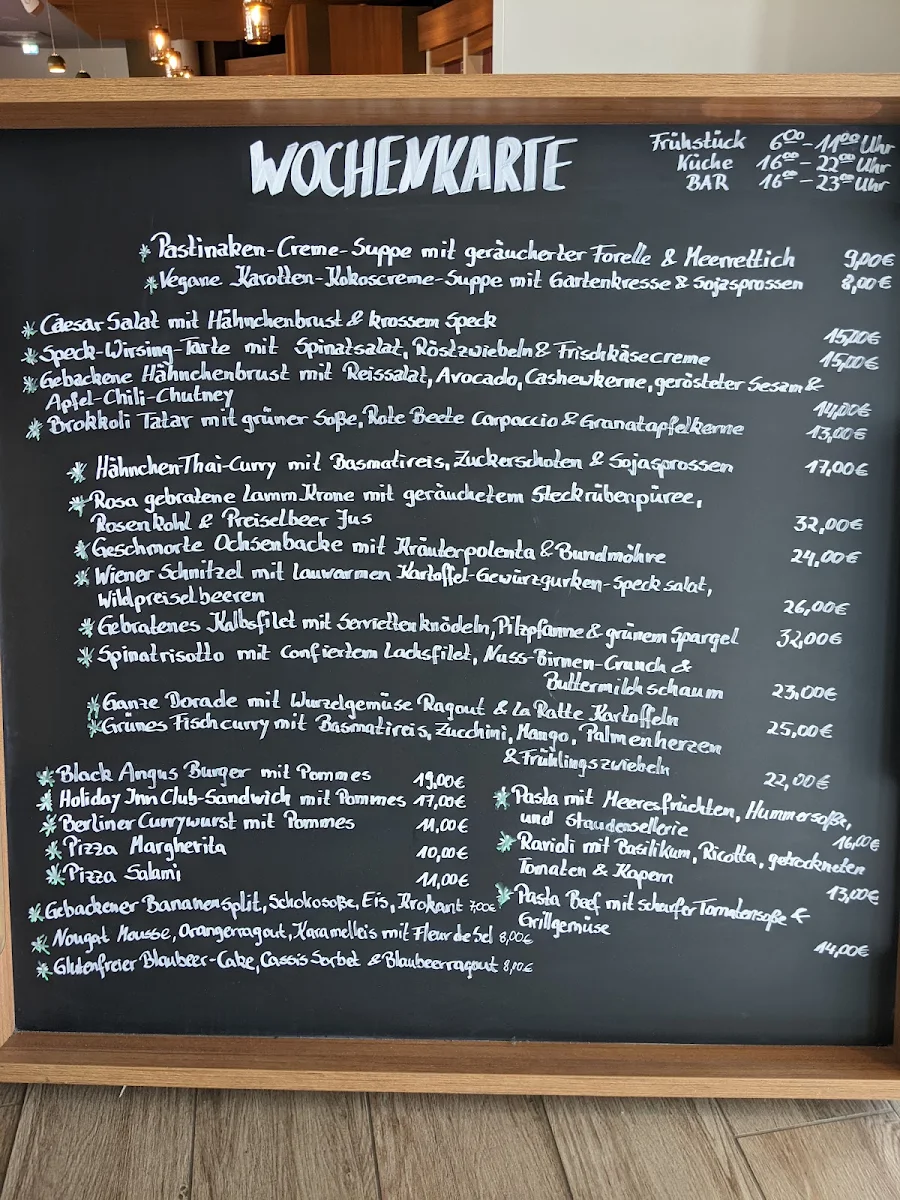 WOCHENKARTE
Frühstück 6⁰⁰-11⁰⁰Uhr
Küche 16⁰⁰-22⁰⁰Uhr
BAR 16⁰⁰-23⁰⁰Uhr
Pastinaken-Creme-Suppe mit geräucherter Forelle & Meerrettich 9,00€
Vegane Karotten-Kokoscreme-Suppe mit Gartenkresse & Sojasprossen 8,00€
Caesar Salat mit Hähnchenbrust & krossem Speck 15,00€
Speck-Wirsing-Tarte mit Spinatsalat, Röstzwiebeln & Frischkäsecreme 15,00€
Gebackene Hähnchenbrust mit Reissalat, Avocado, Cashewkerne, gerösteter Sesam &
Apfel-Chili-Chutney 14,00€
Brokkoli Tatar mit grüner Soße, Rote Beete Carpaccio & Granatapfelkerne 13,00€
Hähnchen-Thai-Curry mit Basmatireis, Zuckerschoten & Sojasprossen 17,00€
Rosa gebratene Lamm Krone mit geräuchetem Steckrübenpüree,
Rosenkohl & Preiselbeer Jus 32,00€
Geschmorte Ochsenbacke mit Kräuterpolenta & Bundmöhre 24,00€
Wiener Schnitzel mit lauwarmen Kartoffel-Gewürzgurken-Specksalat,
Wildpreiselbeeren 26,00€
Gebratenes Kalbsfilet mit Serviettenknödeln, Pilzpfanne & grünem Spargel 32,00€
Spinatrisotto mit confiertem Lachsfilet, Nuss-Birnen-Crunch &
Buttermilchschaum 23,00€
Ganze Dorade mit Wurzelgemüse Ragout & La Ratte Kartoffeln 25,00€
Grünes Fischcurry mit Basmatireis, Zucchini, Mango, Palmenherzen
& Frühlingszwiebeln 22,00€
Black Angus Burger mit Pommes 19,00€
Holiday Inn Club-Sandwich mit Pommes 17,00€
Berliner Currywurst mit Pommes 11,00€
Pizza Margherita 10,00€
Pizza Salami 11,00€
Gebackener Bananensplit, Schokosoße, Eis, Krokant 7,00€
Nougat Mousse, Orangenragout, Karamelleis mit Fleur de Sel 8,00€
Glutenfreier Blaubeer-Cake, Cassis Sorbet & Blaubeerragout 8,00€
Pasta mit Meeresfrüchten, Hummersoße,
und Staudensellerie 16,00€
Ravioli mit Basilikum, Ricotta, getrockneten
Tomaten & Kapern 13,00€
Pasta Beef mit scharfer Tomatensoße &
Grillgemüse 14,00€